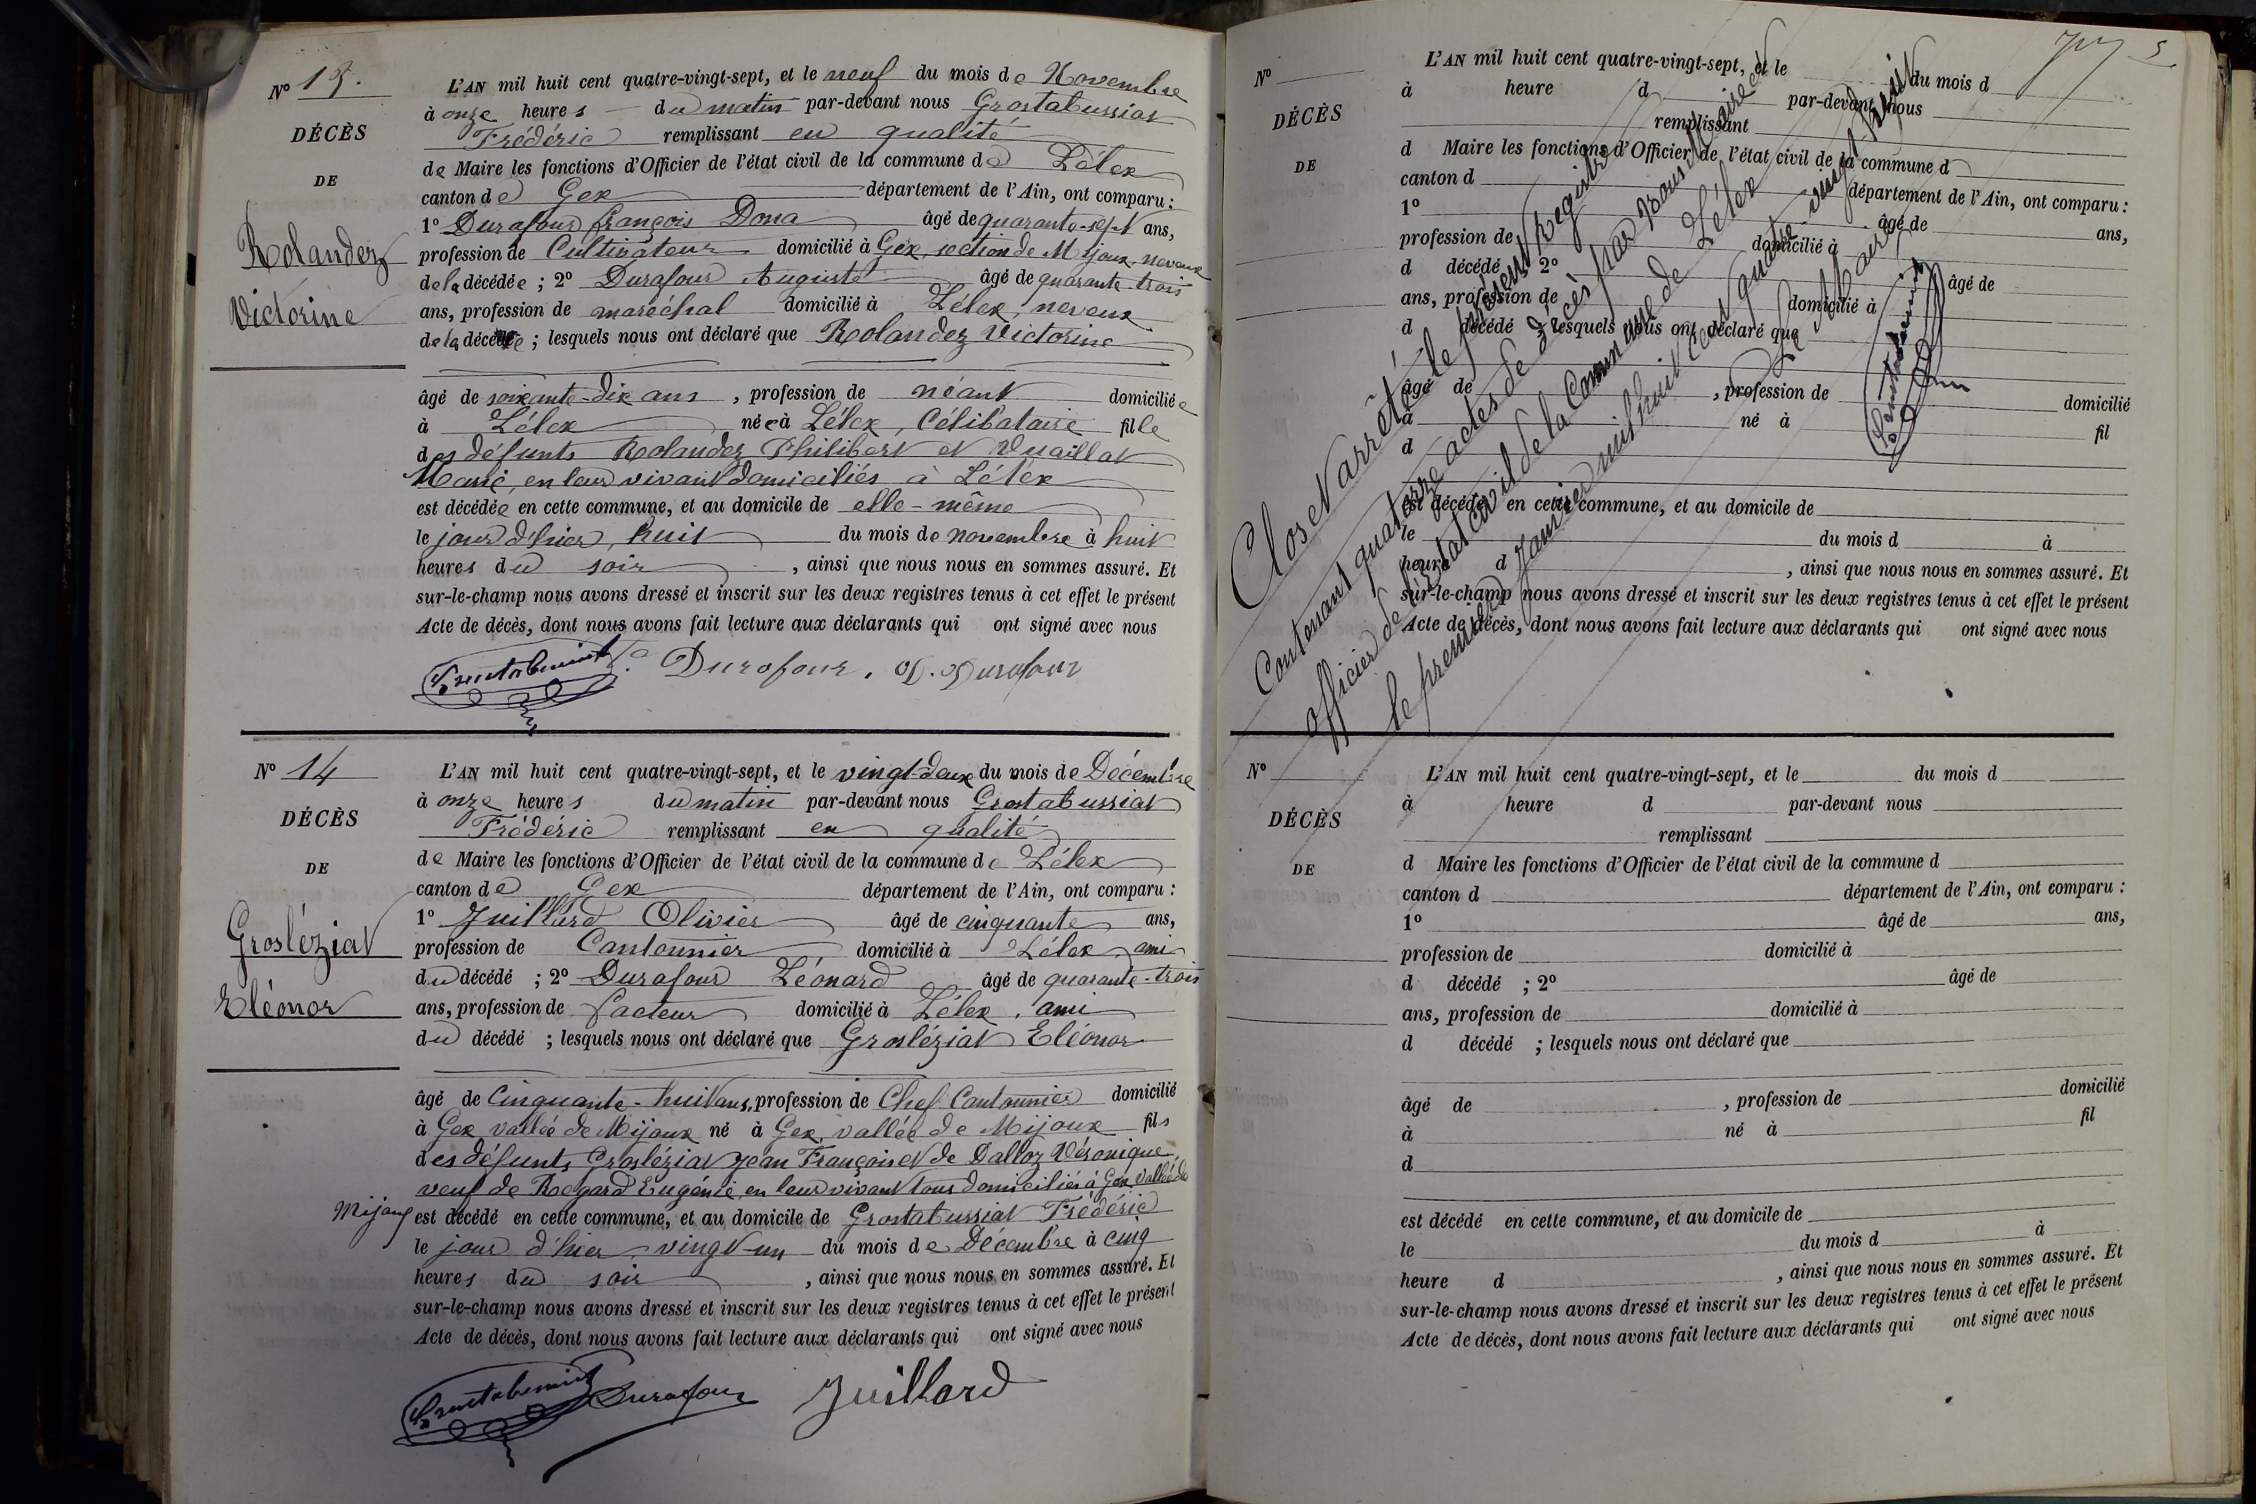 No 13.
DÉCÈS
DE
Rolandez
Victorine
L'AN mil huit cent quatre-vingt-sept, et le neuf du mois de Novembre
à onze heures du matin par-devant nous Grostabussiat
Frédéric remplissant en qualité
de Maire les fonctions d'Officier de l'état civil de la commune de Lélex
canton de Gex département de l'Ain, ont comparu :
1o Durafour françois Dona âgé de quarante-sept ans,
profession de Cultivateur domicilié à Gex, section de Mijoux neveux
de la décédée ; 2o Durafour Auguste âgé de quarante-trois
ans, profession de maréchal domicilié à Lélex, neveux
de la décédée ; lesquels nous ont déclaré que Rolandez Victorine
âgé de soixante-dix ans , profession de néant domiciliée
à Lélex née à Lélex, Célibataire fille
des défunts Rolandez Philibert et Vuaillat
Marie, en leur vivant domiciliés à Lélex
est décédée en cette commune, et au domicile de elle-même
le jour d'hier, huit du mois de novembre à huit
heures du soir , ainsi que nous nous en sommes assuré. Et
sur-le-champ nous avons dressé et inscrit sur les deux registres tenus à cet effet le présent
Acte de décès, dont nous avons fait lecture aux déclarants qui ont signé avec nous
Grostabussiat Durafour. Durafour
No 14
DÉCÈS
DE
Grosléziat
Eléonor
L'AN mil huit cent quatre-vingt-sept, et le vingt-deux du mois de Décembre
à onze heures du matin par-devant nous Grostabussiat
Frédéric remplissant en qualité
de Maire les fonctions d'Officier de l'état civil de la commune de Lélex
canton de Gex département de l'Ain, ont comparu :
1o Juillard Olivier âgé de cinquante ans,
profession de Cantonnier domicilié à Lélex, ami
du décédé ; 2o Durafour Léonard âgé de quarante-trois
ans, profession de facteur domicilié à Lélex, ami
du décédé ; lesquels nous ont déclaré que Grosléziat Eléonor
âgé de Cinquante-huit ans, profession de Chef Cantonnier domicilié
à Gex vallée de Mijoux né à Gex, vallée de Mijoux fils
des défunts Grosléziat Jean François et de Dalloz Véronique,
veuf de Regard Eugénie, en leur vivant tous domiciliés à Gex vallée de
Mijoux est décédé en cette commune, et au domicile de Grostabussiat Frédéric
le jour d'hier, vingt-un du mois de Décembre à cinq
heures du soir , ainsi que nous nous en sommes assuré. Et
sur-le-champ nous avons dressé et inscrit sur les deux registres tenus à cet effet le présent
Acte de décès, dont nous avons fait lecture aux déclarants qui ont signé avec nous
Grostabussiat Durafour Juillard
No
DÉCÈS
DE
L'AN mil huit cent quatre-vingt-sept, et le du mois d
à heure d par-devant nous
remplissant
d Maire les fonctions d'Officier de l'état civil de la commune d
canton d département de l'Ain, ont comparu :
1o âgé de ans,
profession de domicilié à
d décédé ; 2o âgé de
ans, profession de domicilié à
d décédé ; lesquels nous ont déclaré que
âgé de , profession de domicilié
à né à fil
d
est décédé en cette commune, et au domicile de
le du mois d à
heure d , ainsi que nous nous en sommes assuré. Et
sur-le-champ nous avons dressé et inscrit sur les deux registres tenus à cet effet le présent
Acte de décès, dont nous avons fait lecture aux déclarants qui ont signé avec nous
Clos et arrêté le présent Registre
Contenant quatorze actes de décès par Nous Maire et
officier de l'état civil de la Commune de Lélex
le premier Janvier mil huit cent quatre-vingt-huit
Le Maire,
Grostabussiat
No
DÉCÈS
DE
L'AN mil huit cent quatre-vingt-sept, et le du mois d
à heure d par-devant nous
remplissant
d Maire les fonctions d'Officier de l'état civil de la commune d
canton d département de l'Ain, ont comparu :
1o âgé de ans,
profession de domicilié à
d décédé ; 2o âgé de
ans, profession de domicilié à
d décédé ; lesquels nous ont déclaré que
âgé de , profession de domicilié
à né à fil
d
est décédé en cette commune, et au domicile de
le du mois d à
heure d , ainsi que nous nous en sommes assuré. Et
sur-le-champ nous avons dressé et inscrit sur les deux registres tenus à cet effet le présent
Acte de décès, dont nous avons fait lecture aux déclarants qui ont signé avec nous